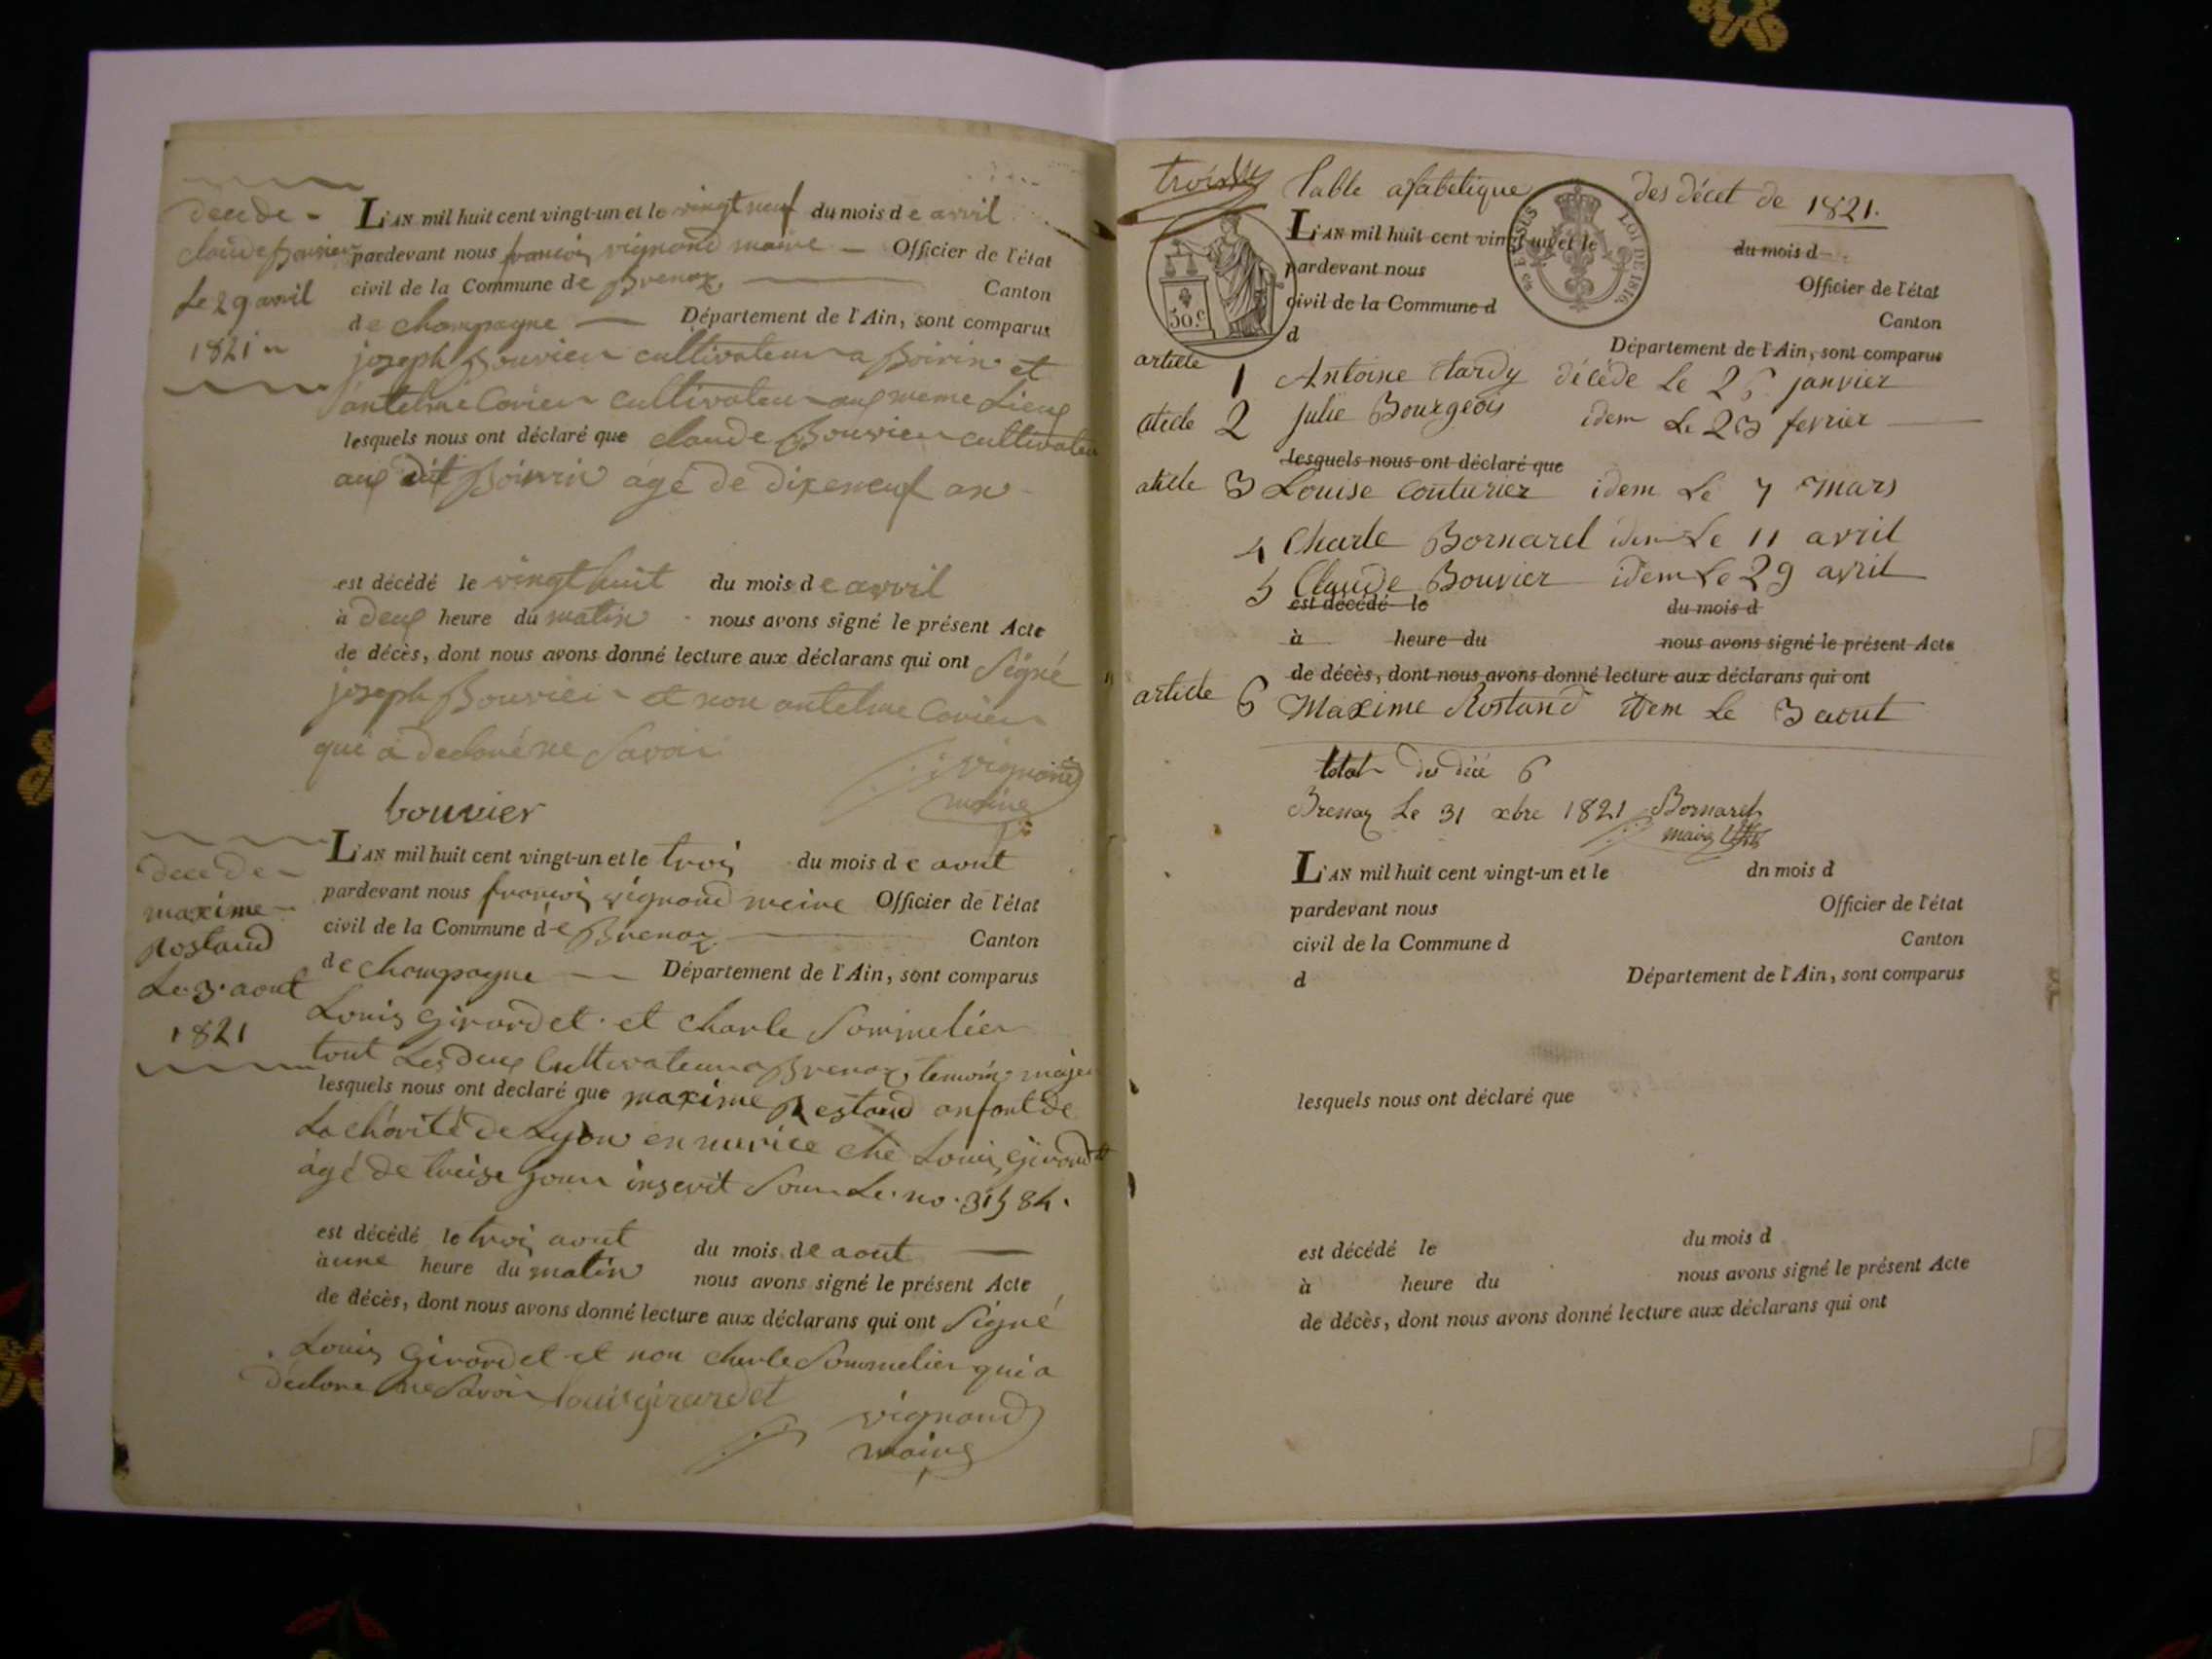 decede
claude Bouvier
le 29 avril
1821
L'AN mil huit cent vingt-un et le vingt neuf du mois de avril
pardevant nous francois vignond maire Officier de l'état
civil de la Commune de Brenaz Canton
de champagne Département de l'Ain, sont comparus
joseph Bouvier cultivateur a Boirin et
antelme Cavier cultivateur aux meme Lieux
lesquels nous ont déclaré que claude Bouvier cultivateu
aux dit Boirin agé de dixeneuf an
est décédé le vingt huit du mois de avril
à deux heure du matin nous avons signé le présent Acte
de décès, dont nous avons donné lecture aux déclarans qui ont Signé
joseph Bouvier et non antelme Cavier
qui a declaré ne Savoir
vignond
maire
bouvier
decede
maxime
Rostand
Le 3 aout
1821
L'AN mil huit cent vingt-un et le trois du mois de aout
pardevant nous francois vignond meire Officier de l'état
civil de la Commune de Brenaz Canton
de champagne Département de l'Ain, sont comparus
Louis girardet et charle Sommelier
tout Les deux Cultivateur a Brenaz temoin majeu
lesquels nous ont declaré que maxime Restand anfant de
La chárité de Lyon en nurice ché Louis girardet
agé de treise jour inscrit Sour Le no. 31584.
est décédé le trois aout du mois de aout
à une heure du matin nous avons signé le présent Acte
de décès, dont nous avons donné lecture aux déclarans qui ont Signé
Louis girardet et non charle Sommelier qui a
declare ne Savoir louis girardet
vignond
maire
Table afabetique des décet de 1821.
L'AN mil huit cent vingt-un et le du mois d
pardevant nous Officier de l'état
civil de la Commune d Canton
d Département de l'Ain, sont comparus
50.c
LOI DE 1816.
article 1 Antoine tardy décéde Le 26 janvier
aticle 2 julie Bourgeois idem Le 23 fevrier
lesquels nous ont déclaré que
aticle 3 Louise couturier idem Le 7 mars
4 Charle Bornarel idem Le 11 avril
5 Claude Bouvier idem Le 29 avril
est décédé le du mois d
à heure du nous avons signé le présent Acte
de décès, dont nous avons donné lecture aux déclarans qui ont
article 6 Maxime Rostand idem Le 3 aout
total des décé 6
Brenaz Le 31 xbre 1821 Bornarel
maire
L'AN mil huit cent vingt-un et le dn mois d
pardevant nous Officier de l'état
civil de la Commune d Canton
d Département de l'Ain, sont comparus
lesquels nous ont déclaré que
est décédé le du mois d
à heure du nous avons signé le présent Acte
de décès, dont nous avons donné lecture aux déclarans qui ont